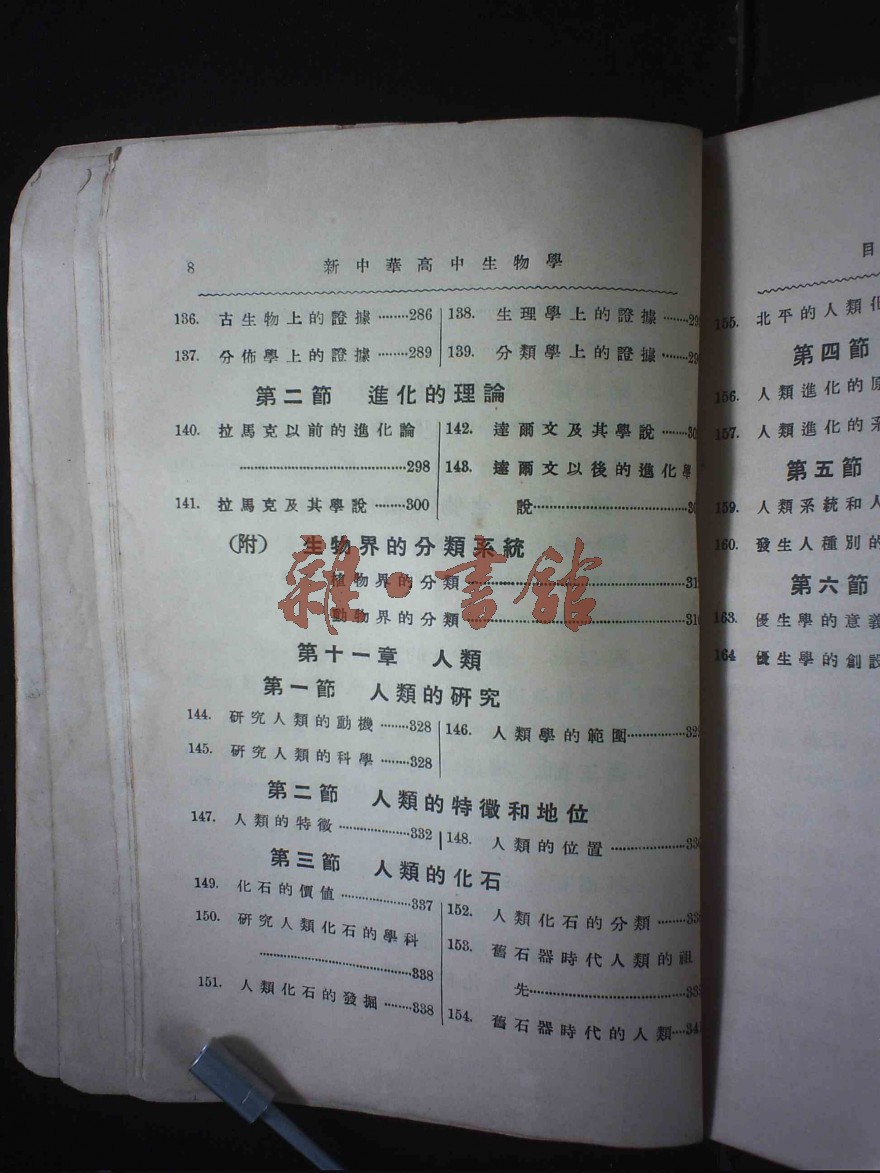 8 新中華高中生物學
136. 古生物上的證據………286
137. 分佈學上的證據………289
138. 生理學上的證據
139. 分類學上的證據
第二節 進化的理論
140. 拉馬克以前的進化論
………298
141. 拉馬克及其學說………300
142. 達爾文及其學說
143. 達爾文以後的進化學
說
(附) 生物界的分類系統
植物界的分類
動物界的分類
第十一章 人類
第一節 人類的研究
144. 研究人類的動機………328
145. 研究人類的科學………328
146. 人類學的範圍
第二節 人類的特徵和地位
147. 人類的特徵………332
148. 人類的位置
第三節 人類的化石
149. 化石的價値………337
150. 研究人類化石的學科
………338
151. 人類化石的發掘………338
152. 人類化石的分類
153. 舊石器時代人類的祖
先
154. 舊石器時代的人類
雜·書館
目
155. 北平的人類化
第四節
156. 人類進化的
157. 人類進化的
第五節
159. 人類系統和人
160. 發生人種別的
第六節
163. 優生學的意義
164 優生學的創設